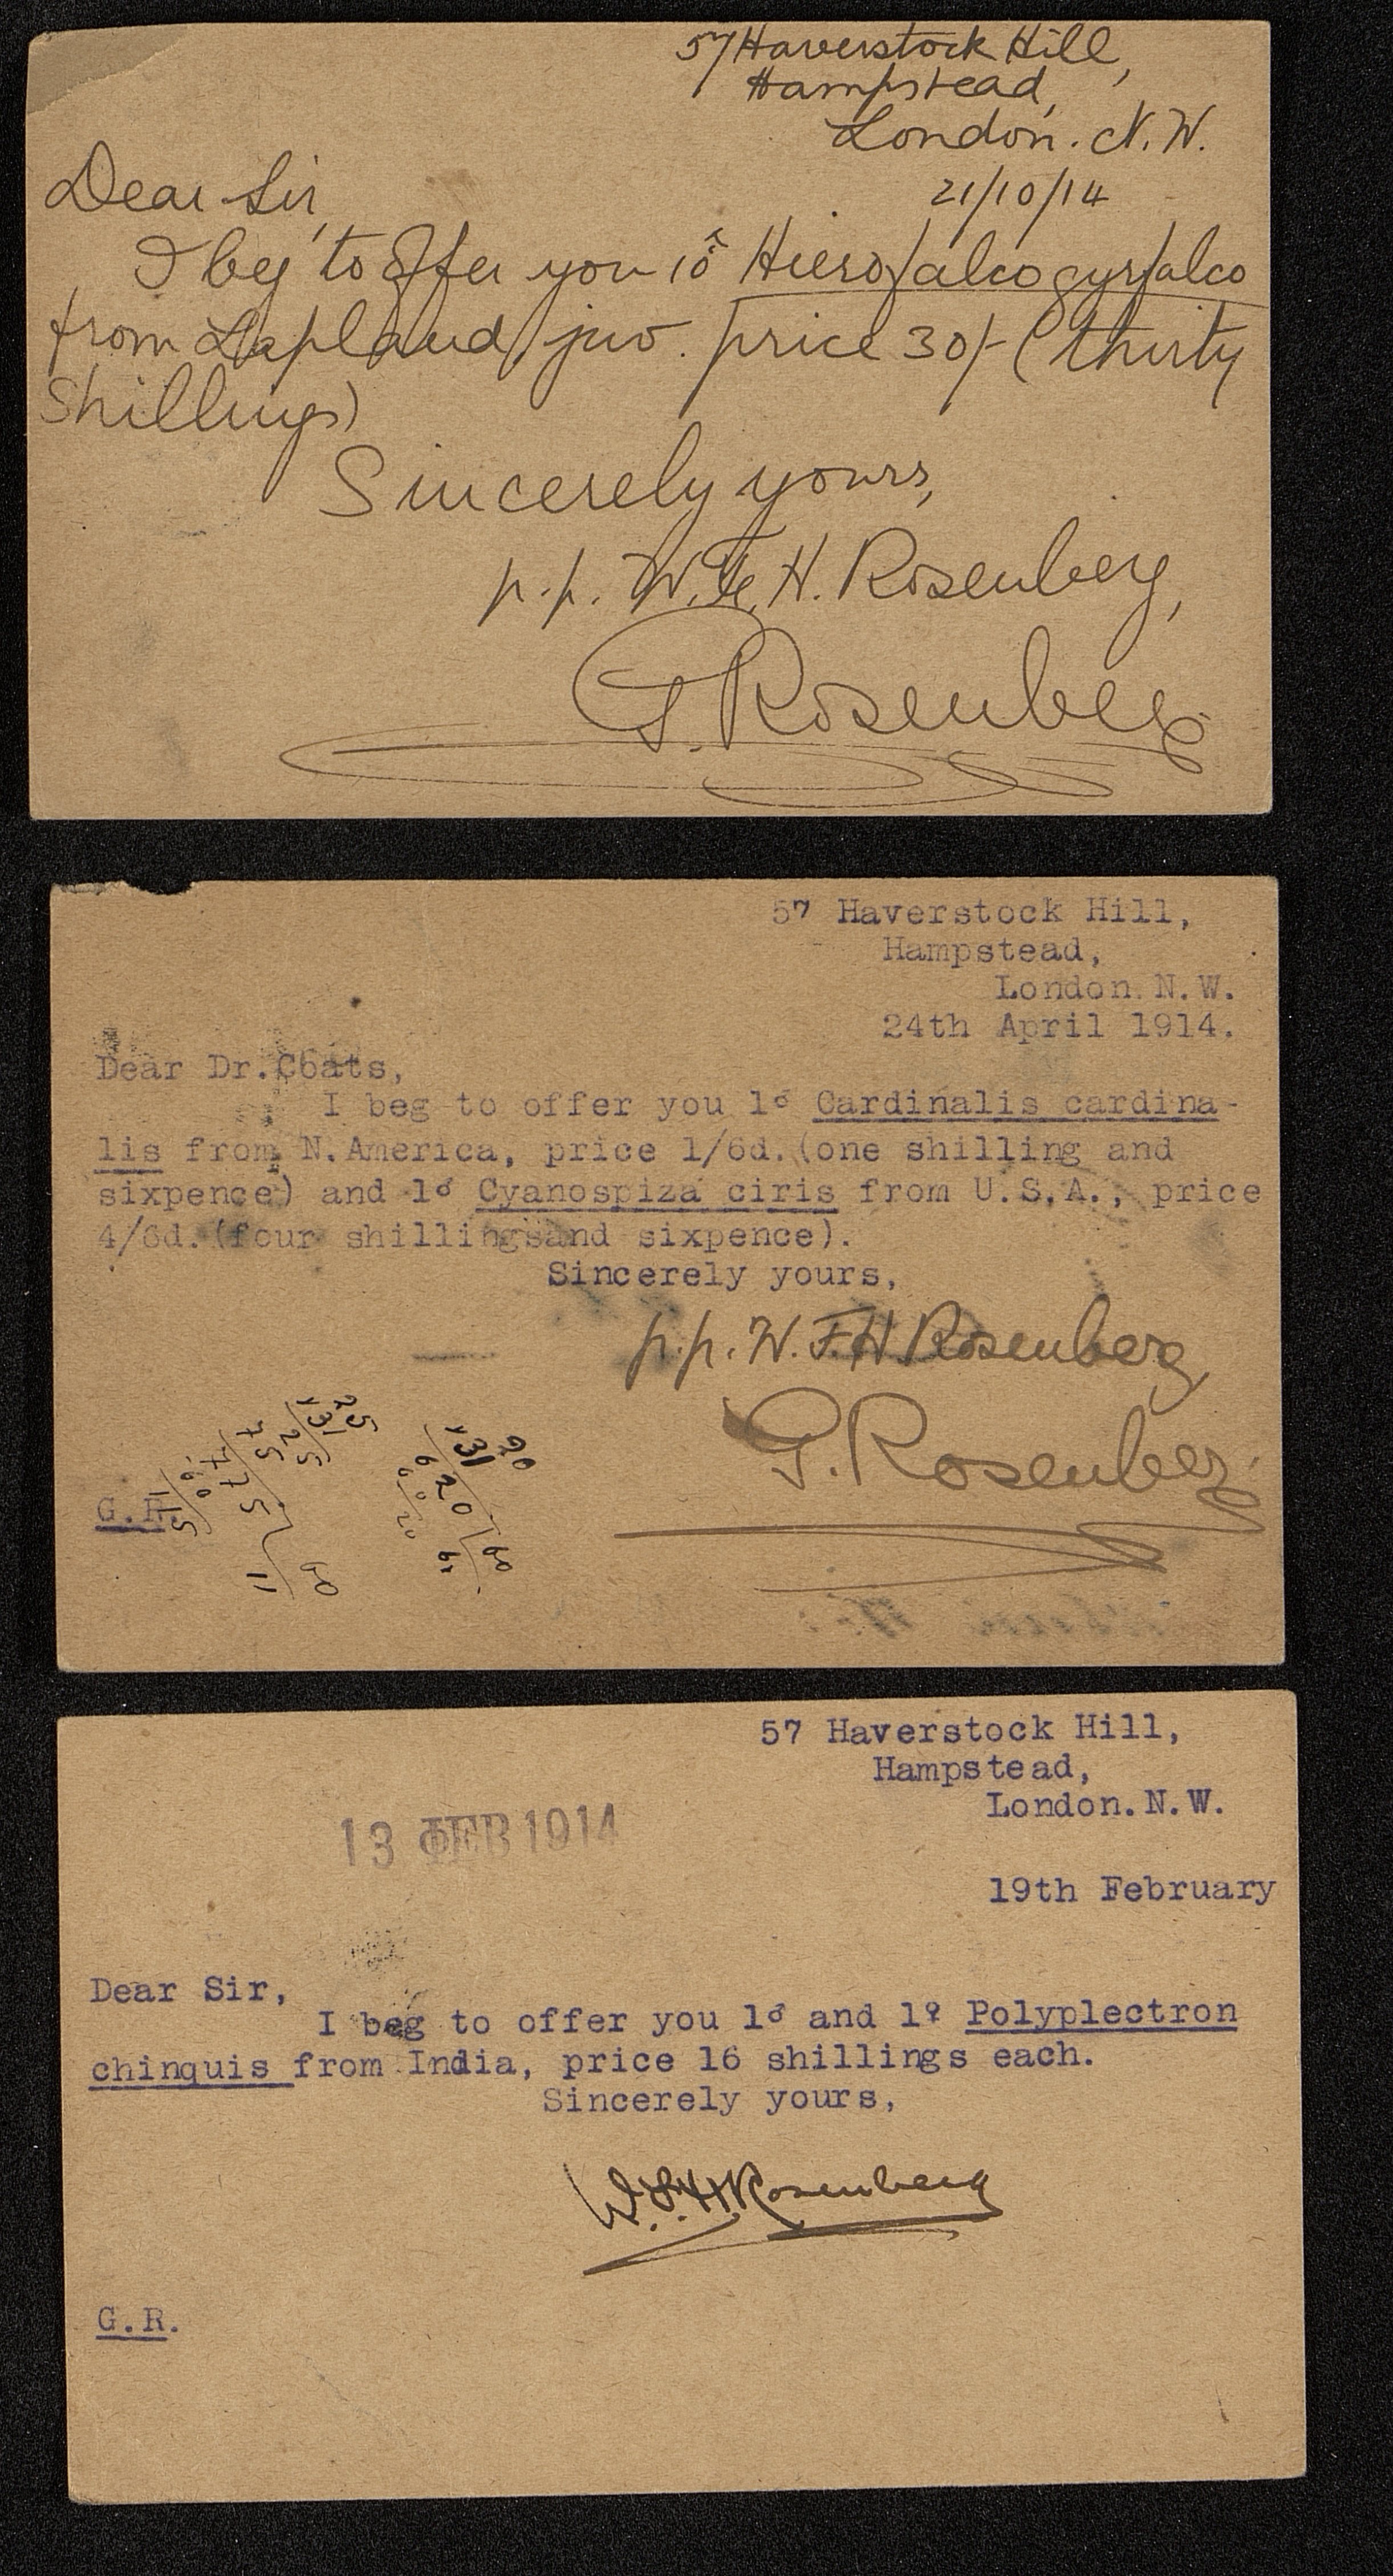 57 Haverstock Hill,
Hampstead,
London. N.W.
21/10/14
Dear Sir,
I beg to offer you 1♂ Hierofalco gyrfalco
from Lapland, juv. price 30/- (thirty
shillings)
Sincerely yours,
p.p. W.F.H. Rosenberg,
G. Rosenberg
57 Haverstock Hill,
Hampstead,
London.N.W.
24th April 1914.
Dear Dr.Coats,
I beg to offer you 1♂ Cardinalis cardina-
lis from N.America, price 1/6d.(one shilling and
sixpence) and 1♂ Cyanospiza ciris from U.S.A., price
4/6d.(four shillingsand sixpence).
Sincerely yours,
p.p. W.F.H. Rosenberg,
G. Rosenberg
G.R.
57 Haverstock Hill,
Hampstead,
London.N.W.
13 ФЕВ 1914
19th February
Dear Sir,
I beg to offer you 1♂ and 1♀ Polyplectron
chinquis from India, price 16 shillings each.
Sincerely yours,
W.F.H. Rosenberg
G.R.